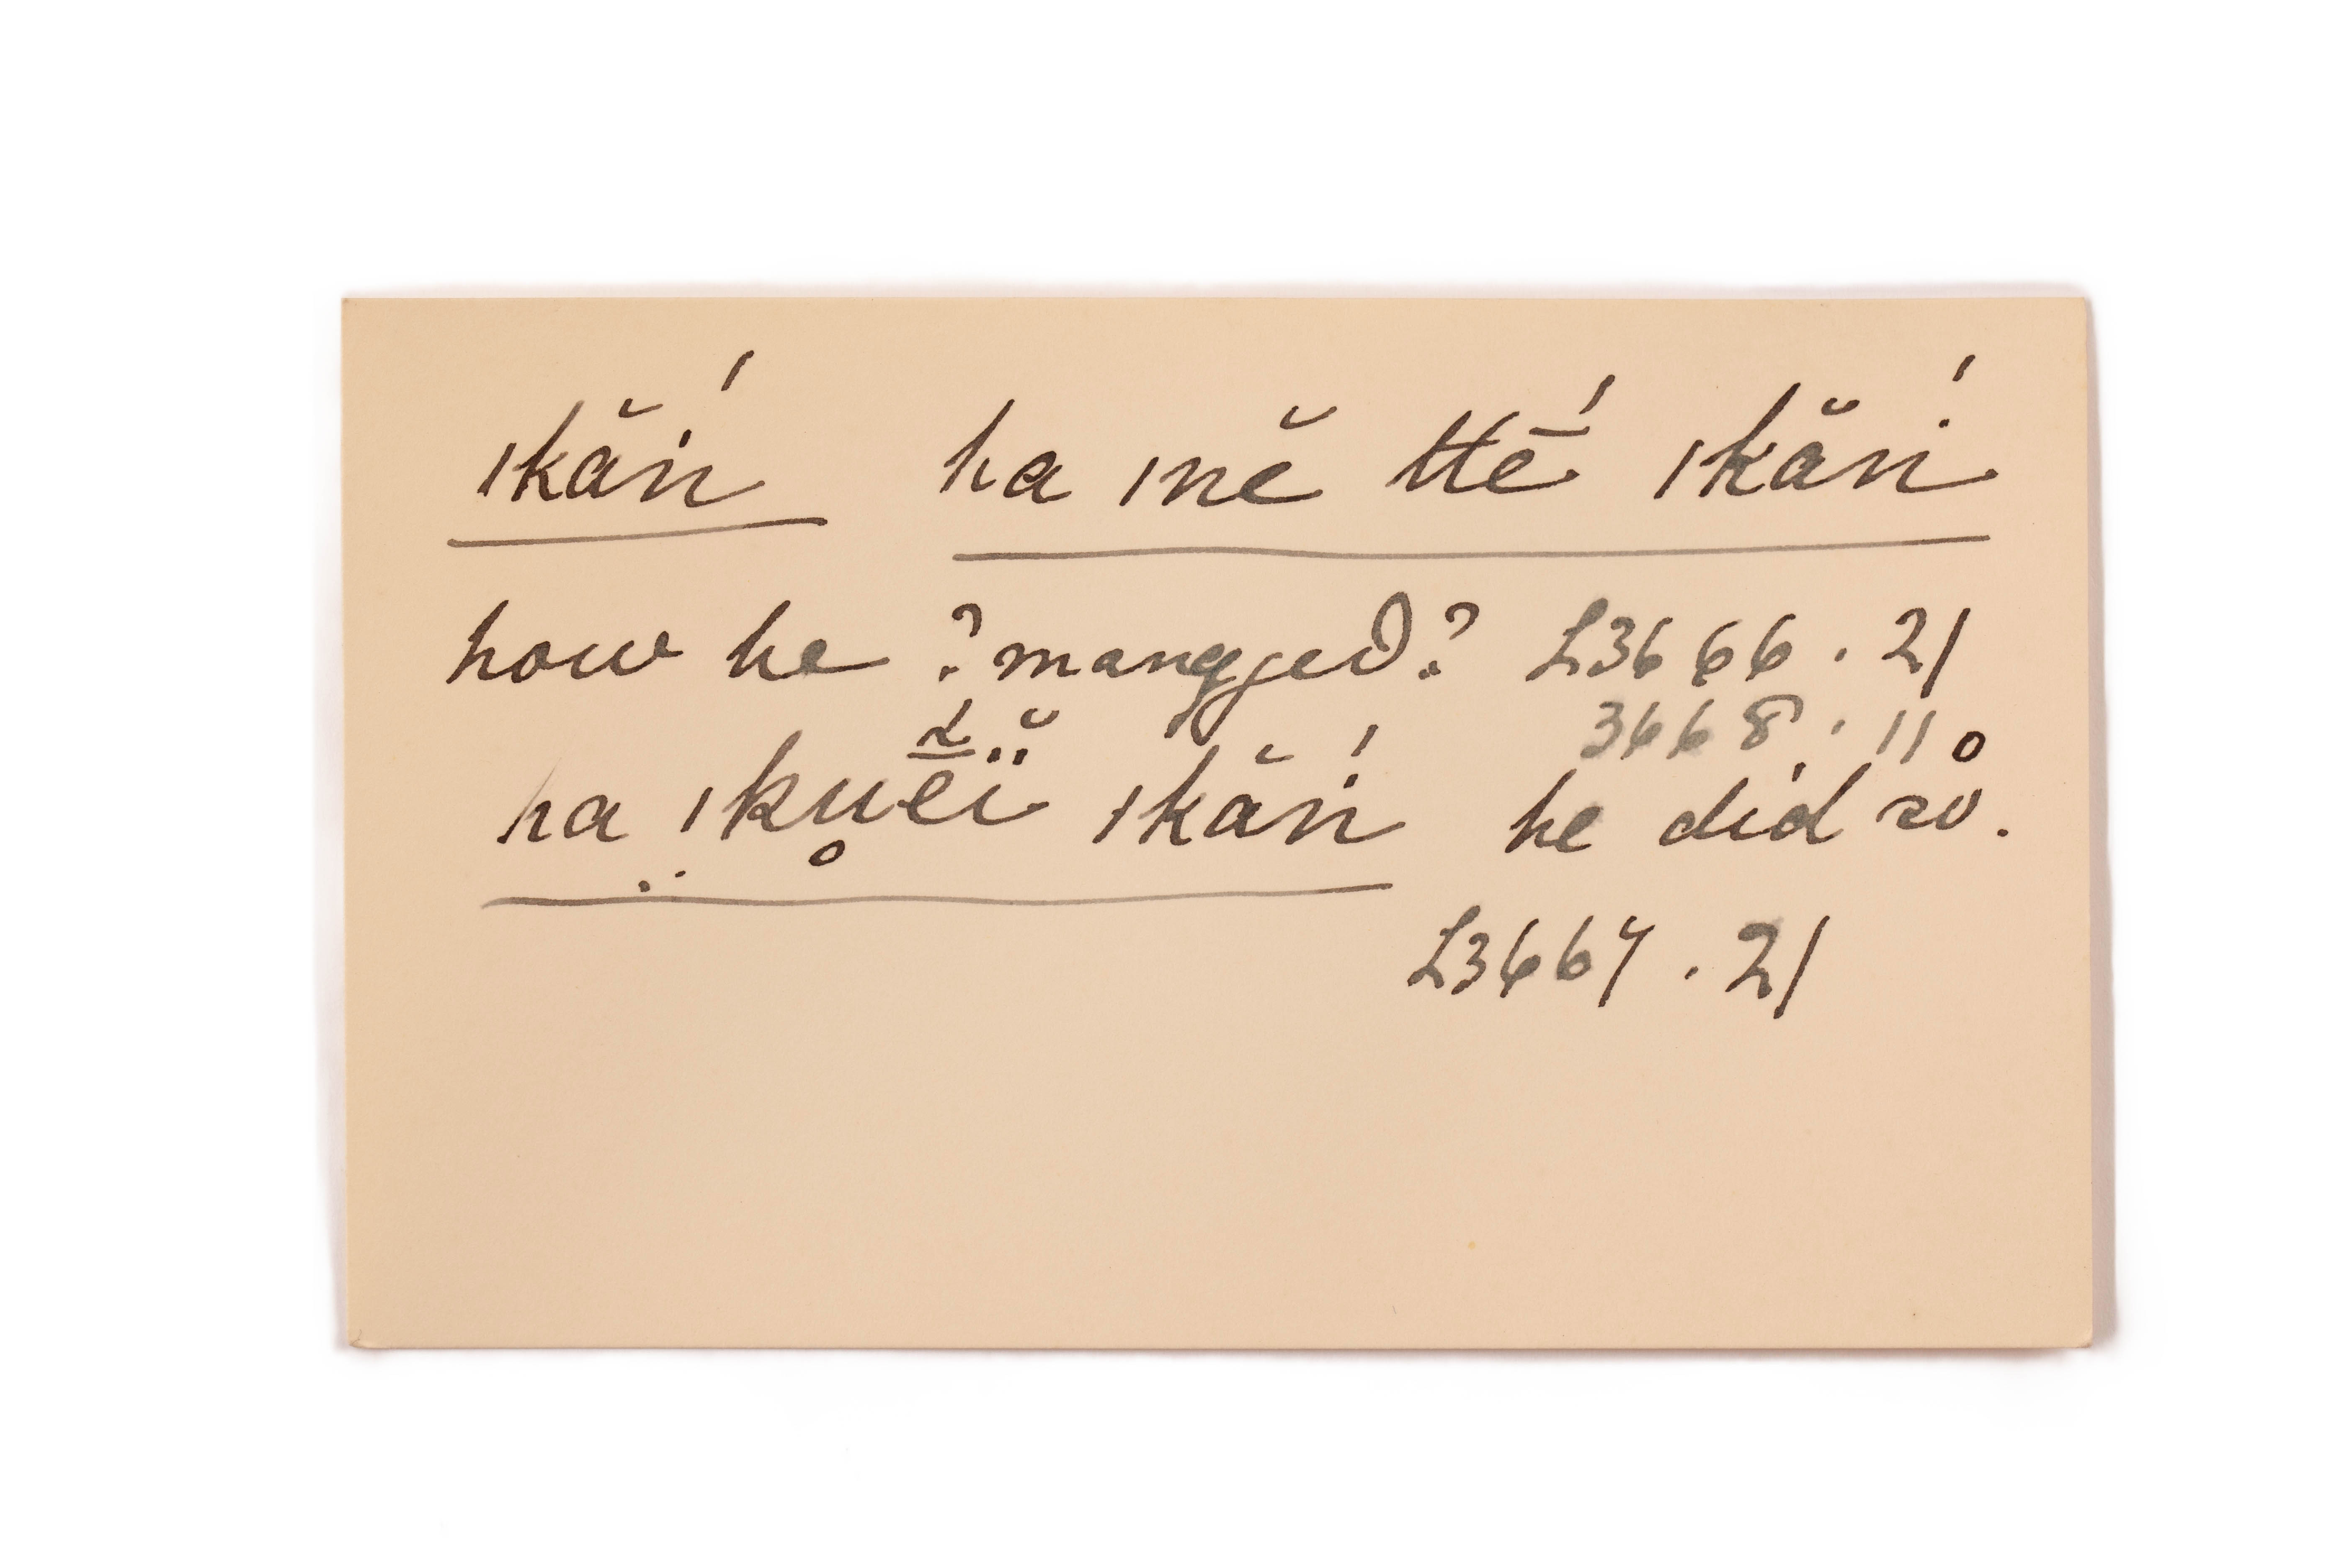 ıkăṅ́ ha ınĕ ttḗ ıkăṅ́
how he ? mangged ? L3666 . 21
3668 . 11
ha ı̤ku̥ē̆ï̆ ıkăṅ́ he did so .
L3667 . 21